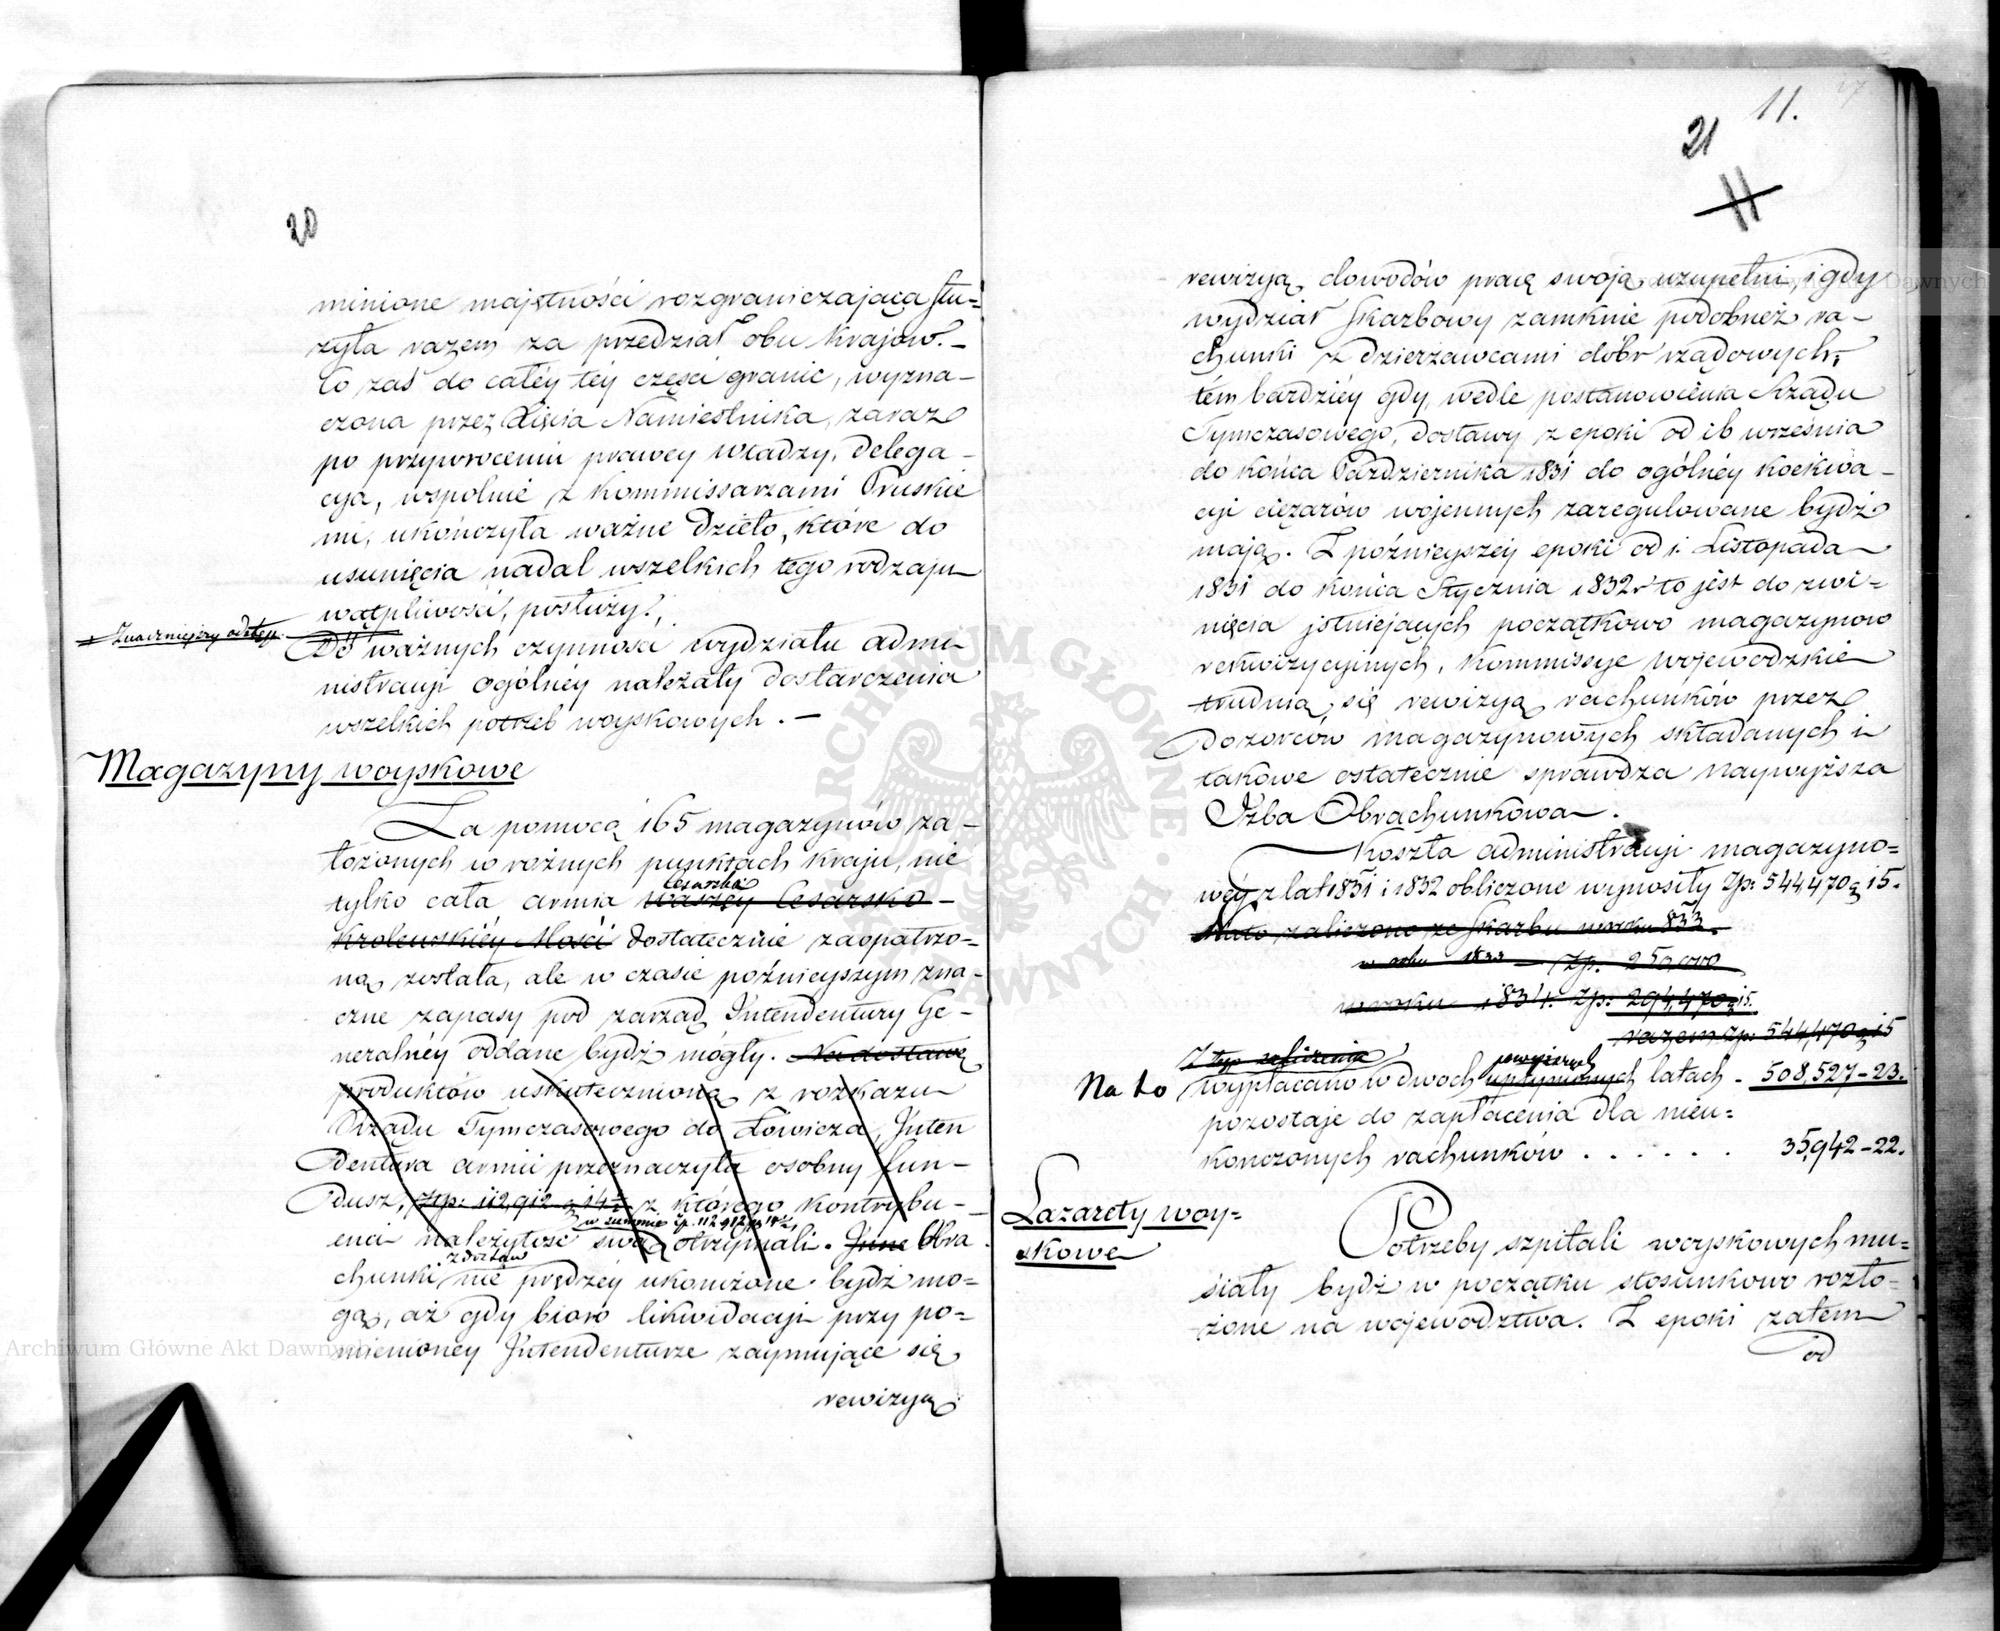 20
minione majętności rozgraniczająca słu=
żyła razem za przedział obu krajów. –
Co zaś do całéy téy części granic, wyzna–
czona przez Xięcia Namiestnika, zaraz
po przywróceniu prawéy władzy, delega–
cya, wspólnie z Kommissarzami Pruskie
mi, ukończyła ważne dzieło, które do
usunięcia nadal wszelkich tego rodzaju
wątpliwości, posłuży.
Znaczniejszy odstęp.
Do ważnych czynności wydziału admi
nistracyi ogólnéy należały dostarczenia
wszelkich potrzeb woyskowych. –
Magazyny woyskowe
Za pomocą 165 magazynów za–
łożonych w rożnych punktach kraju, nie
Cesarska
tylko cała armia Waszéy Cesarsko–
Krolewskiéy Mości dostatecznie zaopatrzo–
ną została, ale w czasie poźnieyszym zna–
czne zapasy pod zarząd Intendentury Ge–
neralnéy oddane bydź mogły. Na dostawę
produktów uskutecznioną z rozkazu
Rządu Tymczasowego do Łowicza, Inten
dentura armii przeznaczyła osobny fun–
dusz, Złp: 112,912 g 14½ z którego kontrybu–
w summie zp. 112 912 g 14½,
enci należytość swoją otrzymali. Inne Obra
z dostaw
chunki nie prędzéy ukończone bydź mo=
gą, aż gdy bióro likwidacyi przy po=
mienionéy Intendenturze zaymujące się
rewizyą
11.
21
11
rewizyą dowodów pracę swoją uzupełni, i gdy
wydział Skarbowy zamknie podobnież ra–
chunki z dzierżawcami dóbr rządowych,
tém bardziéy gdy, wedle postanowienia Rządu
Tymczasowego, dostawy z epoki od 16 września
do końca Października 1831 do ogólnéy koekwa–
cyi ciężarów wojennych zaregulowane bydź
mają. Z poźnieyszéy epoki od 1. Listopada
1831 do końca Stycznia 1832 r to jest do zwi=
nięcia istniejących początkowo magazynów
rekwizycyinych, Kommissye Wojewodzkie
trudnią się rewizyą rachunków przez
dozorców magazynowych składanych i
takowe ostatecznie sprawdza Naywyższa
Izba Obrachunkowa.
Koszta administracyi magazyno=
wéy z lat 1831 i 1832 obliczone wynosiły Zp: 544470 g 15.
Na to zaliczono ze Skarbu w roku 833.
w roku 1833 – Zp. 250,000
w roku 1834. Zp: 294,470 g 15.
razem Zp. 544,470 g 15
Z tego zaliczenia
powyższych
Na to wypłacano w dwoch upłynionych latach – 508,527–23.
pozostaje do zapłacenia dla nieu=
kończonych rachunków . . . . . . 35,942–22.
Lazarety woy=
skowe
Potrzeby szpitali woyskowych mu=
siały bydź w początku stosunkowo rozło=
żone na województwa. Z epoki zatém
od
Archiwum Główne Akt Dawnych
ARCHIWUM GŁÓWNE AKT DAWNYCH